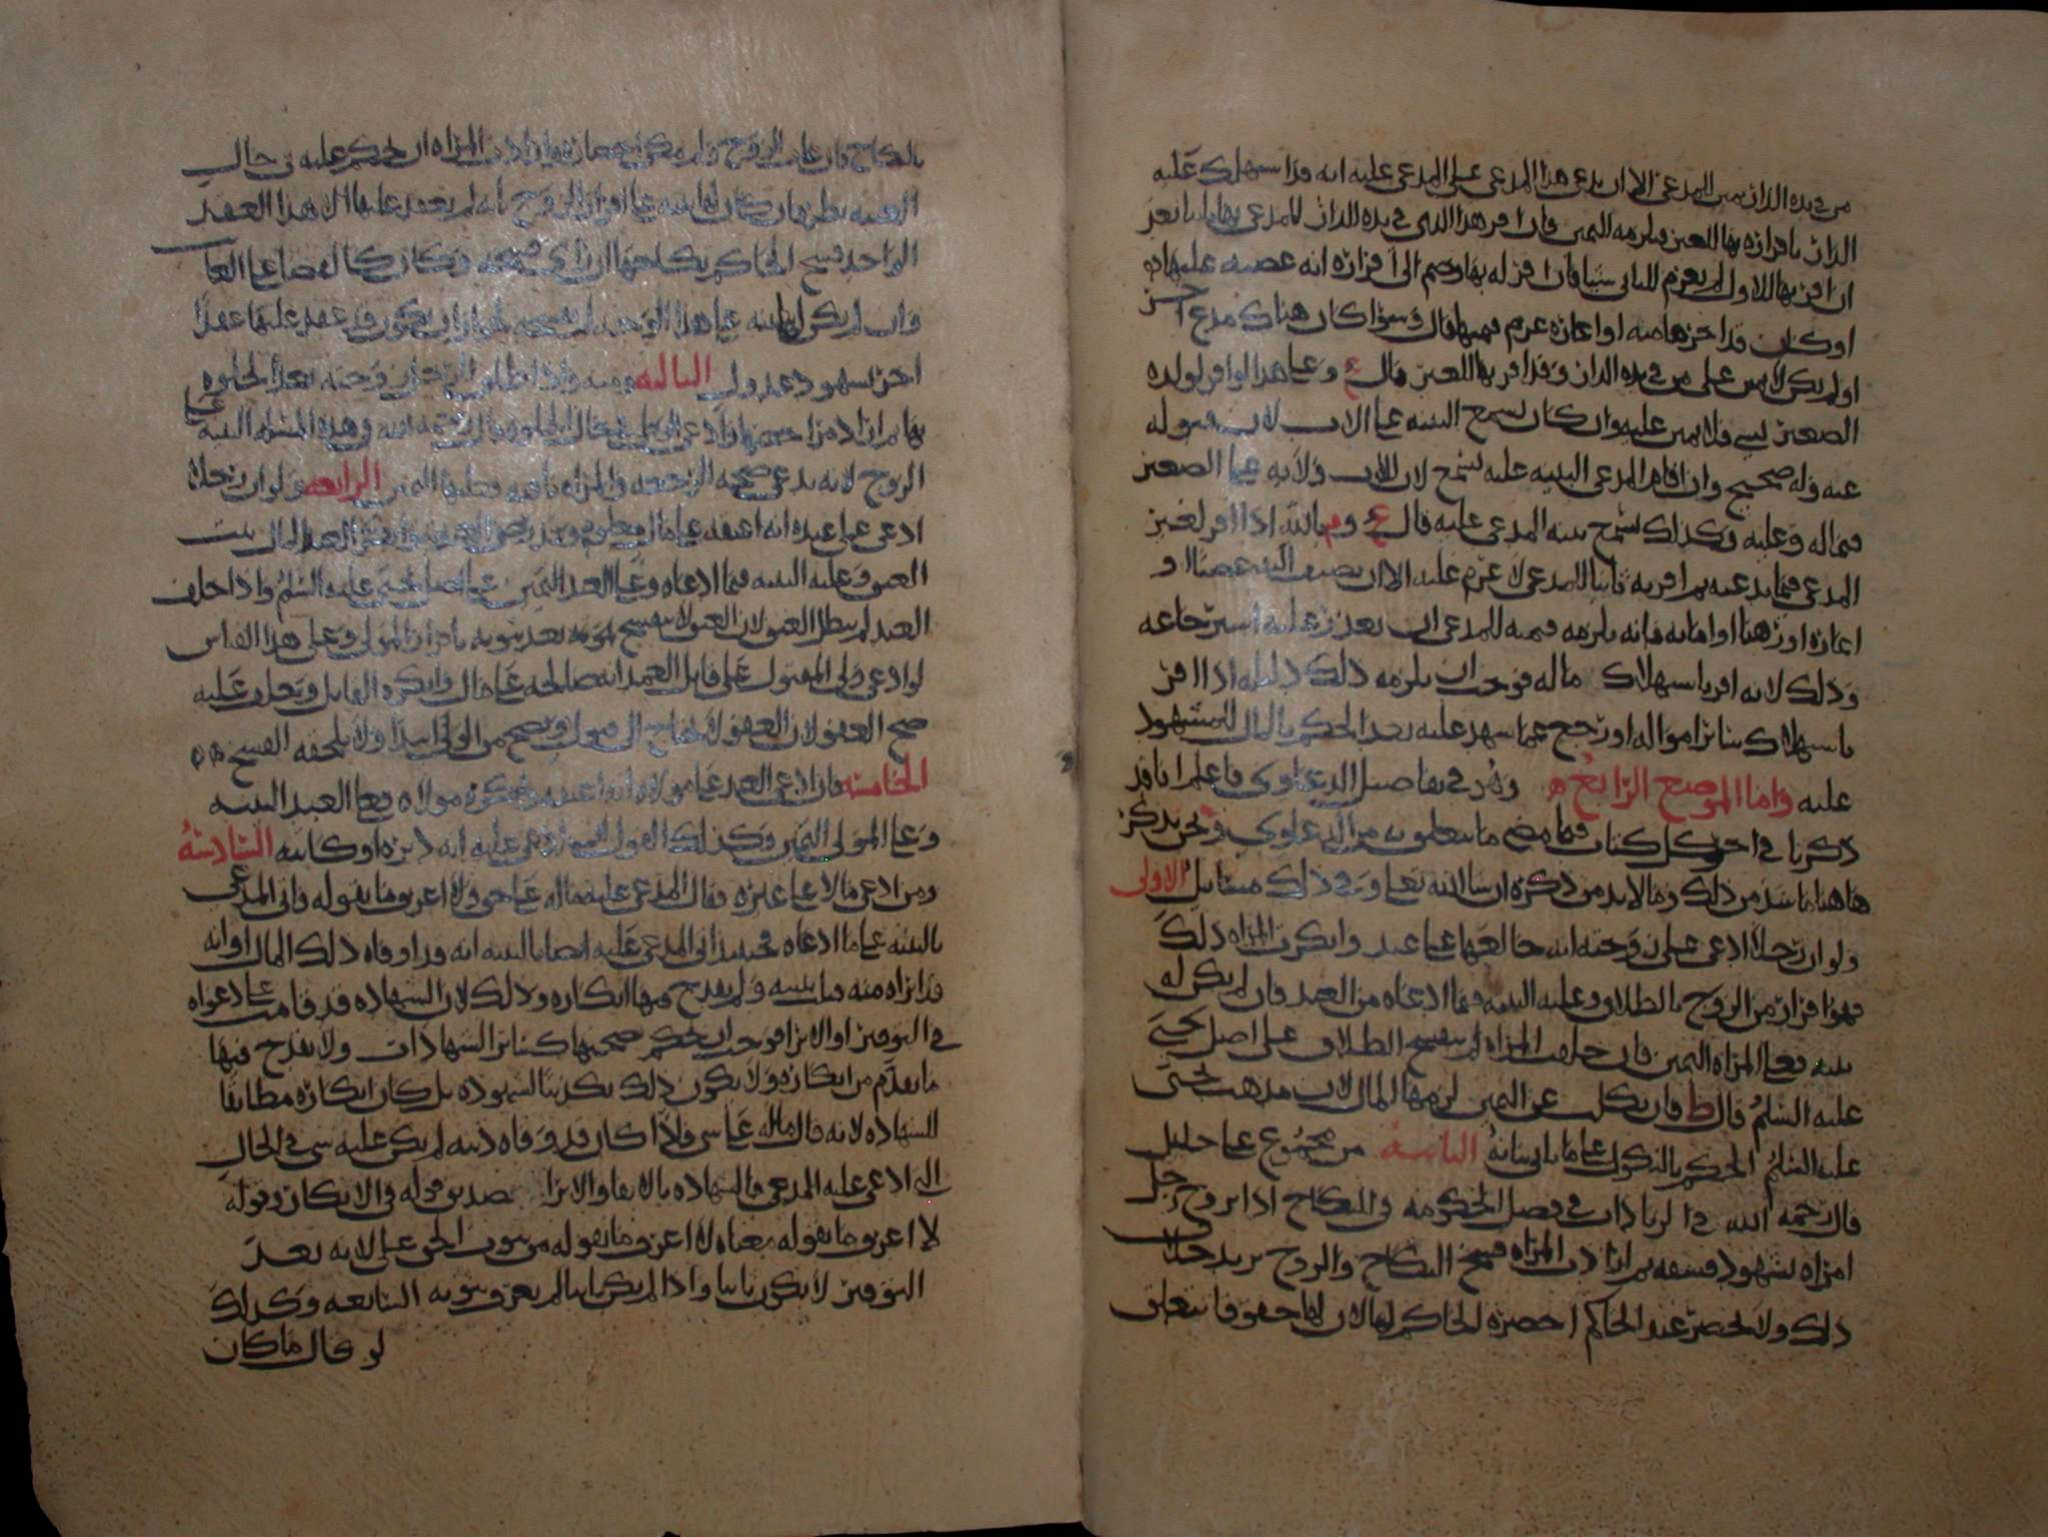 من في يده الدار يمين المدعي الا ان يدعي هذا المدعي على المدعى عليه انه قد استهلك عليه
الدار باقراره بها للغير فيلزمه اليمين فان اقر هذا الذي في يده الدار للمدعي بها ثانيا بعد
ان اقر بها للاول لم يغرم للثاني شيا فان اقر له بها وضم الى اقراره انه غصبه عليها
او كان قد اخذها منه او اعاره غرم قيمتها قال وسوا كان هناك مدع اخر
او لم يكن لا يمين على من في يده الدار وقد اقر بها للغير قال ع وعلى هذا لو اقر لولده
الصغير بشي فلا يمين عليه وان كان تسمع البينه على الاب لان قبوله
عنه وله صحيح وان اقام المدعي البينه عليه تسمع لان للاب ولايه على الصغير
فيما له وعليه وكذلك تسمع بينه المدعي عليه قال ع وم بالله اذا اقر لغير
المدعي فيما يدعيه ثم اقر به ثانيا للمدعي لا غرم عليه الا ان يضيف اليه غصبا او
اعاره او رهنا او امانه فانه يلزمه قيمته للمدعي ان تعذر عليه استرجاعه
وذلك لانه اقر باستهلاك ماله فوجب ان يلزمه ذلك دليله اذا اقر
باستهلاك سائر امواله او رجع عما شهد عليه بعد الحكم بالمال للمشهود
عليه واما الموضع الرابع وهو في تفاصيل الدعاوى فاعلم انا قد
ذكرنا في اخر كل كتاب فيما مضى ما يتعلق به من الدعاوي ونحن نذكر
هاهنا ما شذ من ذلك وما لا بد من ذكره ان شا الله تعلى وفي ذلك مسائل الاولى
ولو ان رجلا ادعى على زوجته انه خالعها على عبد وانكرت المراه ذلك
فهو اقرار من الزوج بالطلاق وعليه البينه فيما ادعاه من العبد فان لم يكن له
بينه فعلى المراه اليمين فان حلفت المراه لم ينفسخ الطلاق على اصل يحيى
عليه السلم قال ط فان نكلت عن اليمين لزمها المال لان مذهب يحيى
عليه السلم الحكم بالنكول على ما ياتي بيانه الثانيه من مجموع على خليل
قال رحمه الله في الزيادات في فصل الحكومه في النكاح اذا تزوج رجل
امراه بشهود فسقه ثم ارادت المراه فسخ النكاح والزوج يريد خلاف
ذلك ولا يحضر عند الحاكم احضره الحاكم لها لان لها حقوقا تتعلق
بالنكاح فان غاب الزوج ولم يمكن احضاره وارادت المراه ان يحكم عليه في حال
الغيبه نظر فان كان لها بينه على اقرار الزوج بانه لم يعقد عليها الا هذا العقد
الواحد فسخ الحاكم نكاحها ان راى فسخه وكان كالقضا على الغايب
وان لم يكن لها بينه على هذا الوجه لم يفسخه لجواز ان يكون قد عقد عليها عقدا
اخر بشهود عدول الثالثه ومنه واذا طلق الرجل زوجته بعد الخلوه
بها ثم اراد مراجعتها فادعى الوطي في حال الخلوه قال رحمه الله وهذه المسله البينه على
الزوج لانه يدعي صحه الرجعه والمراه نافيه فعليها اليمين الرابعه ولو ان رجلا
ادعى على عبده انه اعتقه على مال معلوم وقد رضي العبد وانكر العبد المال ثبت
العتق وعليه البينه فيما ادعاه وعلى العبد اليمين على اصل يحيى عليه السلم واذا حلف
العبد لم يبطل العتق لان العتق لا ينفسخ بوجه بعد ثبوته باقرار المولى وعلى هذا القياس
لو ادعى ولي المقتول على قاتل العمد انه صالحه على مال وانكره القاتل وحلف عليه
صح العفو لان العفو لا يحتاج الى قبول ويصح من الولي ابتدا ولا يلحقه الفسخ
الخامسه فان ادعى العبد على مولاه انه اعتقه وانكره مولاه فعلى العبد البينه
وعلى المولى اليمين وكذلك القول لو ادعى عليه انه دبره او كاتبه السادسه
ومن ادعى مالا على غيره فقال المدعى عليه ماله علي حق ولا اعرف ما يقوله فاتى المدعي
بالبينه على ما ادعاه فحينئذ اتى المدعى عليه ايضا بالبينه انه قد اوفاه ذلك المال او انه
قد ابراه منه قبلت بينته ولم يقدح فيها انكاره وذلك لان الشهاده قد قامت على دعواه
في التوفير او الابرا فوجب ان يحكم بصحتها كسائر الشهادات ولا يقدح فيها
ما تقدم من انكاره ولا يكون ذلك تكذيبا لشهوده بل كان انكاره مطابقا
للشهاده لانه قال ماله علي شي فاذا كان قد وفاه دينه لم يكن عليه شي في الحال
التي ادعى عليه المدعي فالشهاده بالايفا والابرا تصديق قوله في الانكار وقوله
لا اعرف ما يقوله معناه لا اعرف ما يقوله من ثبوت الحق علي لانه بعد
التوفير لا يكون ثابتا واذا لم يكن ثابتا لم يعرف ثبوته السابعه وكذلك
لو قال ما كان